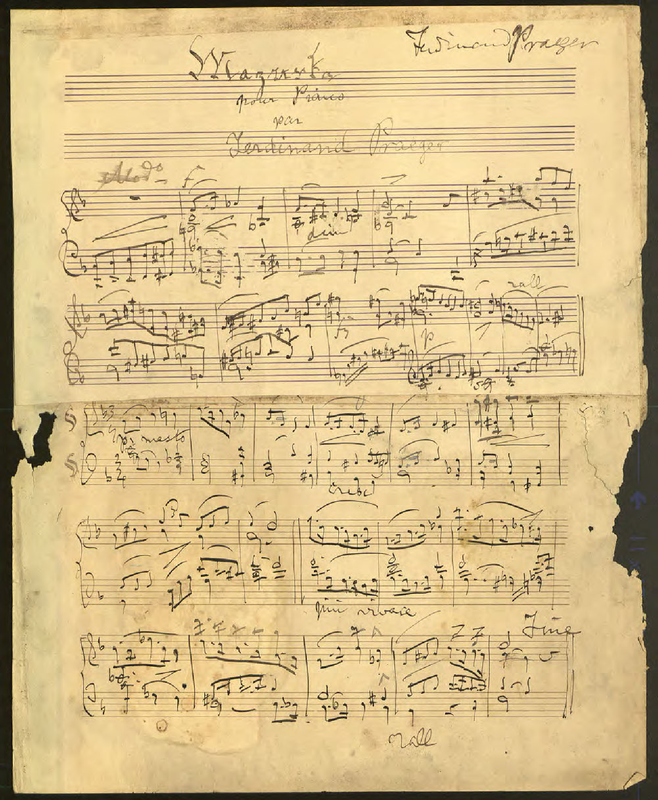 Ferdinand Praeger
Mazurka
pour Piano
par
Ferdinand Praeger
Modo
f
dim
rall
p
p mesto
più vivace
Fine
rall